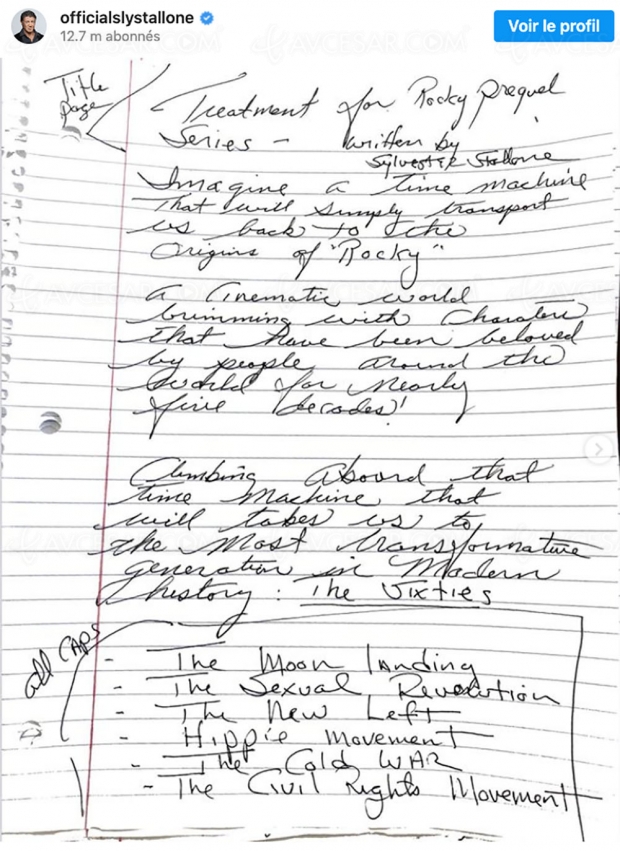 officialslystallone
12.7 m abonnés
Voir le profil
Title page
Treatment for Rocky prequel
Series - written by
Sylvester Stallone
Imagine a time machine
that will simply transport
us back to the
Origins of "Rocky"
a Cinematic world
brimming with Charaters
that have been beloved
by people around the
world for nearly
five decades!
Climbing Aboard that
time machine that
will takes us to
the most transformative
generation in Modern
history: The Sixties
all CAPS
- The Moon landing
- The Sexual Revolution
- The New Left
- Hippie Movement
- The Cold WAR
- The Civil Rights Movement
AVCESAR.COM